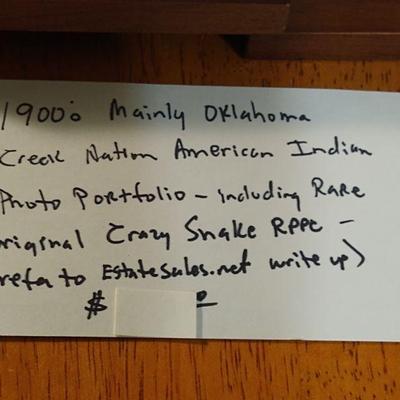 1900's Mainly Oklahoma
Creek Nation American Indian
Photo Portfolio - including Rare
riginal Crazy Snake RPPC -
refer to EstateSales.net write up)
$